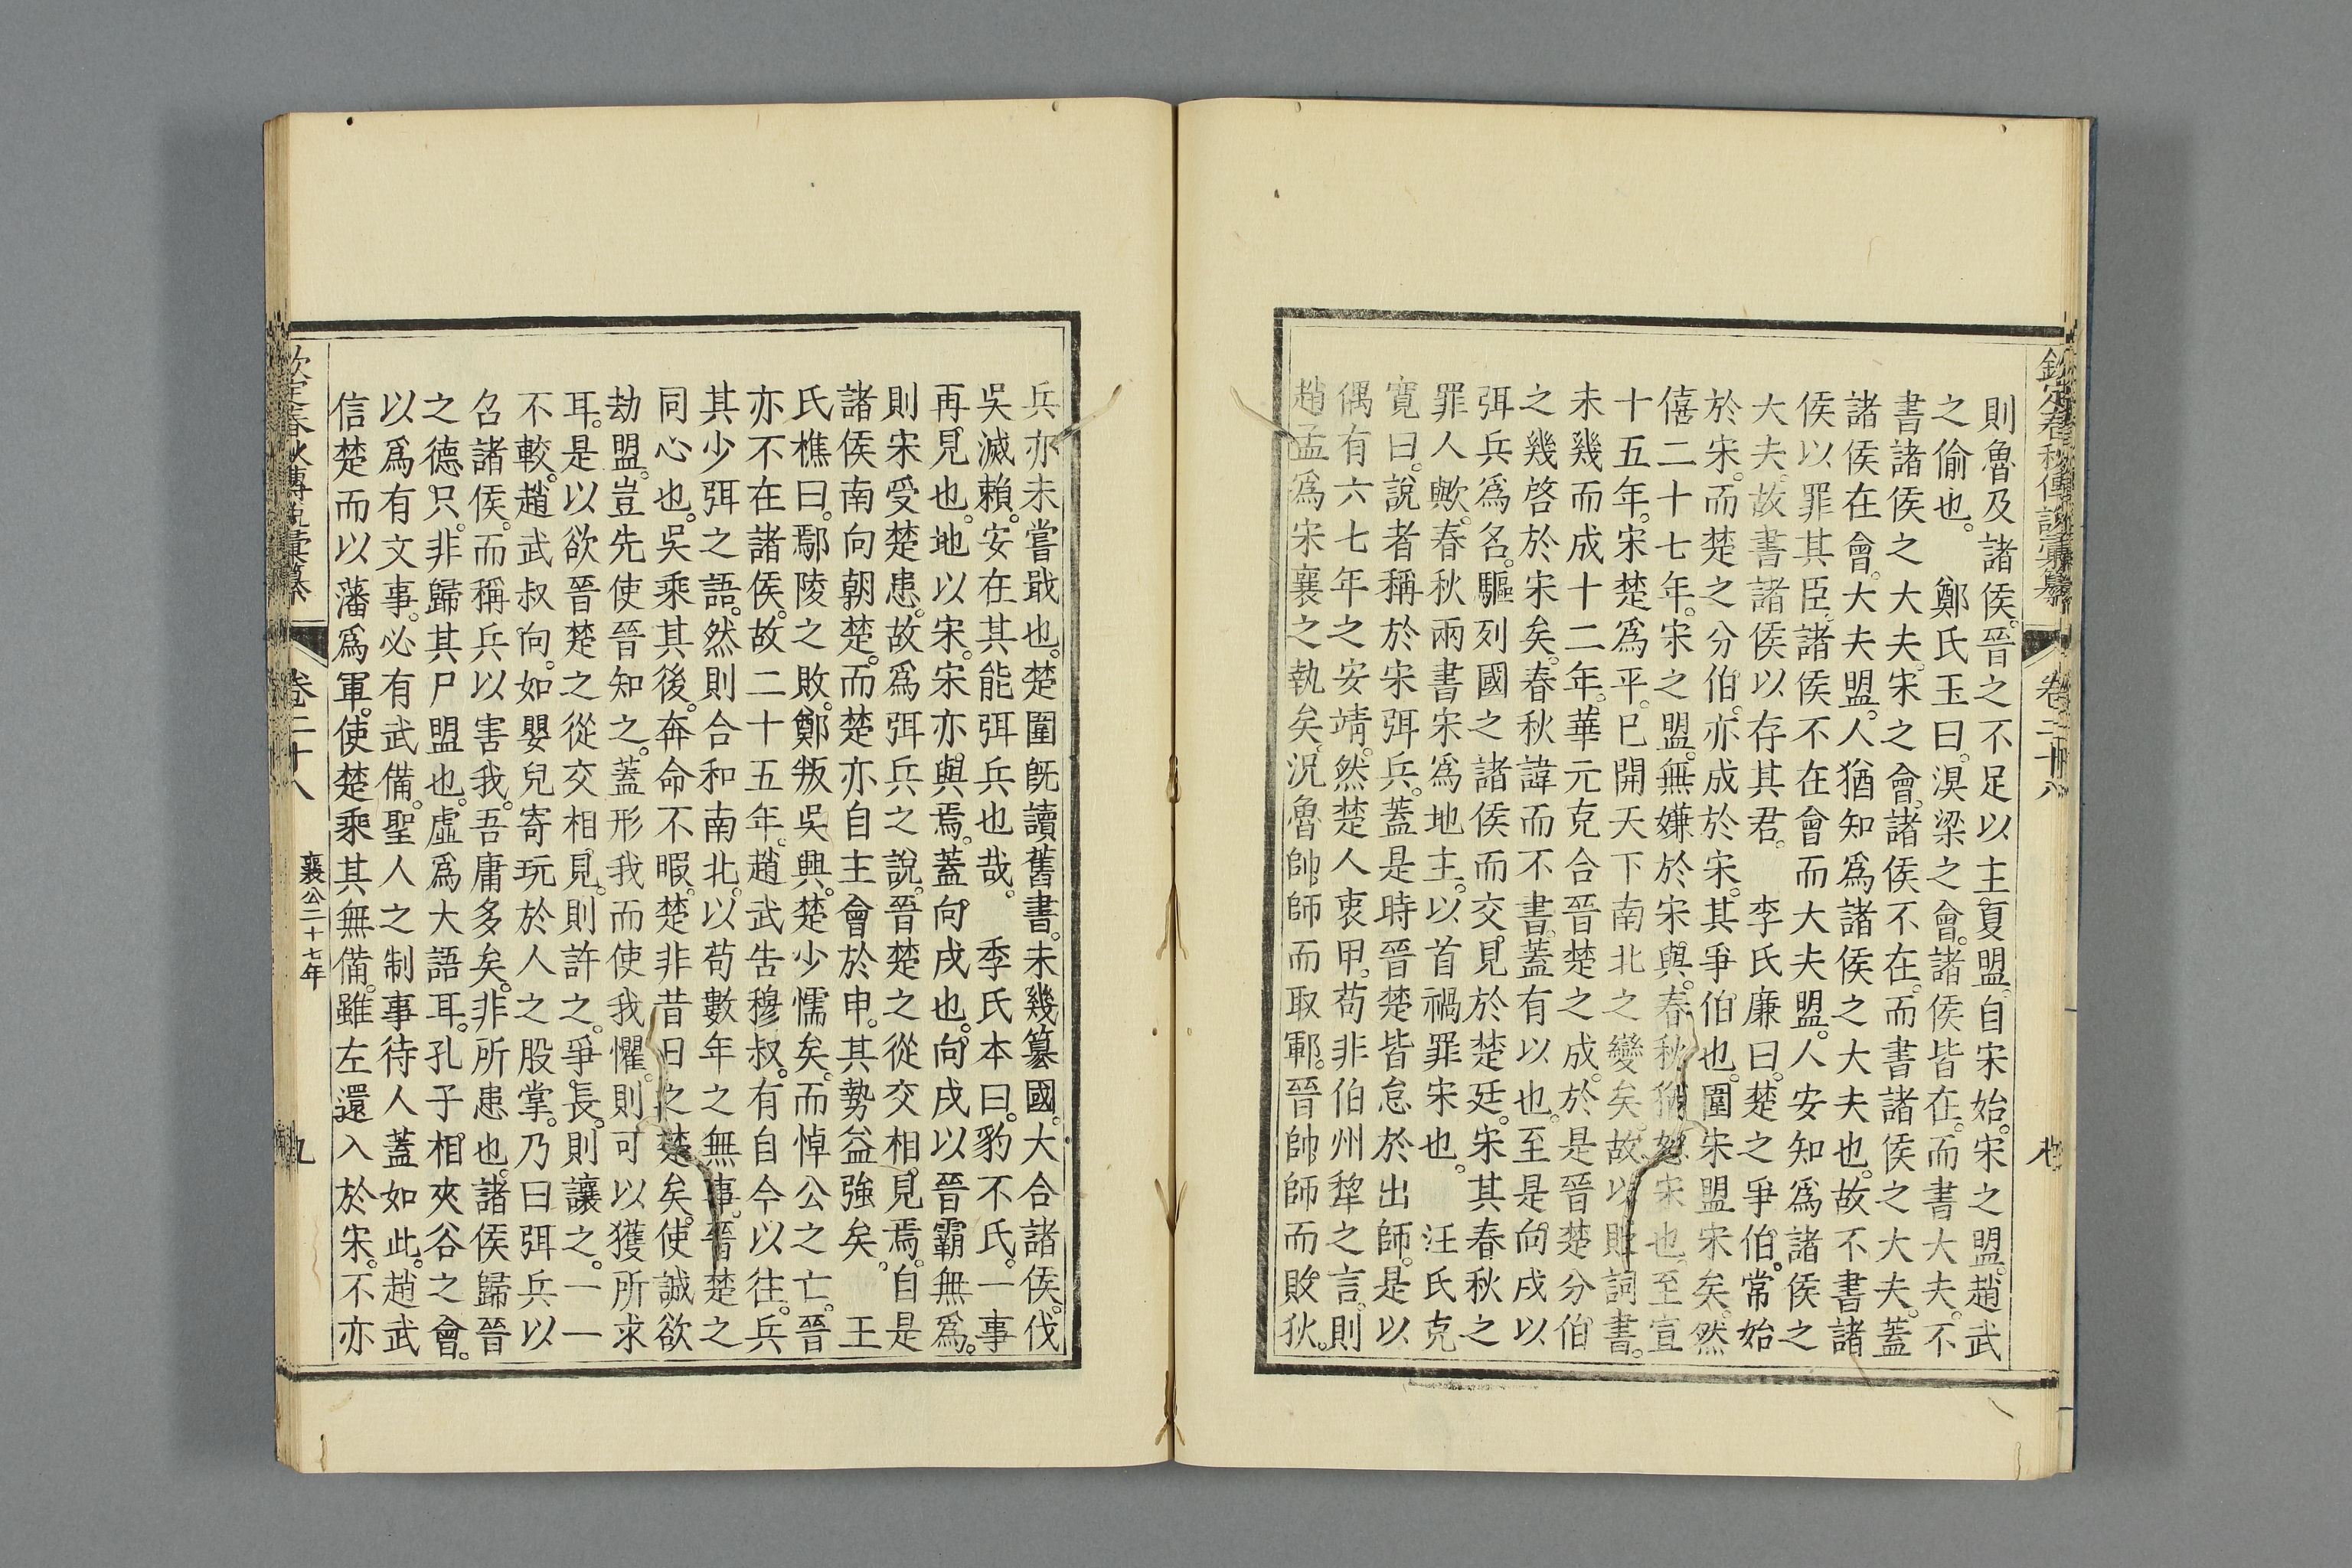 欽定春秋傳說彙纂 卷二十八
則魯及諸侯。晉之不足以主夏盟。自宋始。宋之盟。趙武
之偷也。 鄭氏玉曰。溴梁之會。諸侯皆在。而書大夫。不
書諸侯之大夫。宋之會。諸侯不在。而書諸侯之大夫。蓋
諸侯在會。大夫盟。人猶知爲諸侯之大夫也。故不書諸
侯以罪其臣。諸侯不在會而大夫盟。人安知爲諸侯之
大夫。故書諸侯以存其君。 李氏廉曰。楚之爭伯。常始
於宋。而楚之分伯。亦成於宋。其爭伯也。圍宋盟宋矣。然
僖二十七年。宋之盟。無嫌於宋與。春秋猶恕宋也。至宣
十五年。宋楚爲平。已開天下南北之變矣。故以貶詞書。
未幾而成十二年。華元克合晉楚之成。於是晉楚分伯
之幾啓於宋矣。春秋諱而不書。蓋有以也。至是向戌以
弭兵爲名。驅列國之諸侯而交見於楚廷。宋其春秋之
罪人歟。春秋兩書宋爲地主。以首禍罪宋也。 汪氏克
寬曰。說者稱於宋弭兵。蓋是時晉楚皆怠於出師。是以
偶有六七年之安靖。然楚人衷甲。苟非伯州犂之言。則
趙孟爲宋襄之執矣。況魯帥師而取鄆。晉帥師而敗狄。
兵亦未嘗戢也。楚圍旣讀舊書。未幾簒國。大合諸侯。伐
吳滅賴。安在其能弭兵也哉。 季氏本曰。豹不氏。一事
再見也。地以宋。宋亦與焉。蓋向戌也。向戌以晉霸無爲。
則宋受楚患。故爲弭兵之說。晉楚之從交相見焉。自是
諸侯南向朝楚。而楚亦自主會於申。其勢益強矣。 王
氏樵曰。鄢陵之敗。鄭叛吳興。楚少懦矣。而悼公之亡。晉
亦不在諸侯。故二十五年。趙武告穆叔。有自今以往。兵
其少弭之語。然則合和南北。以苟數年之無事。晉楚之
同心也。吳乘其後。奔命不暇。楚非昔日之楚矣。使誠欲
劫盟。豈先使晉知之。蓋形我而使我懼。則可以獲所求
耳。是以欲晉楚之從交相見。則許之。爭長。則讓之。一一
不較。趙武叔向。如嬰兒寄玩於人之股掌。乃曰弭兵以
召諸侯。而稱兵以害我。吾庸多矣。非所患也。諸侯歸晉
之德只。非歸其尸盟也。虛爲大語耳。孔子相夾谷之會。
以爲有文事。必有武備。聖人之制事待人蓋如此。趙武
信楚而以藩爲軍。使楚乘其無備。雖左還入於宋。不亦
欽定春秋傳說彙纂 卷二十八 襄公二十七年 九